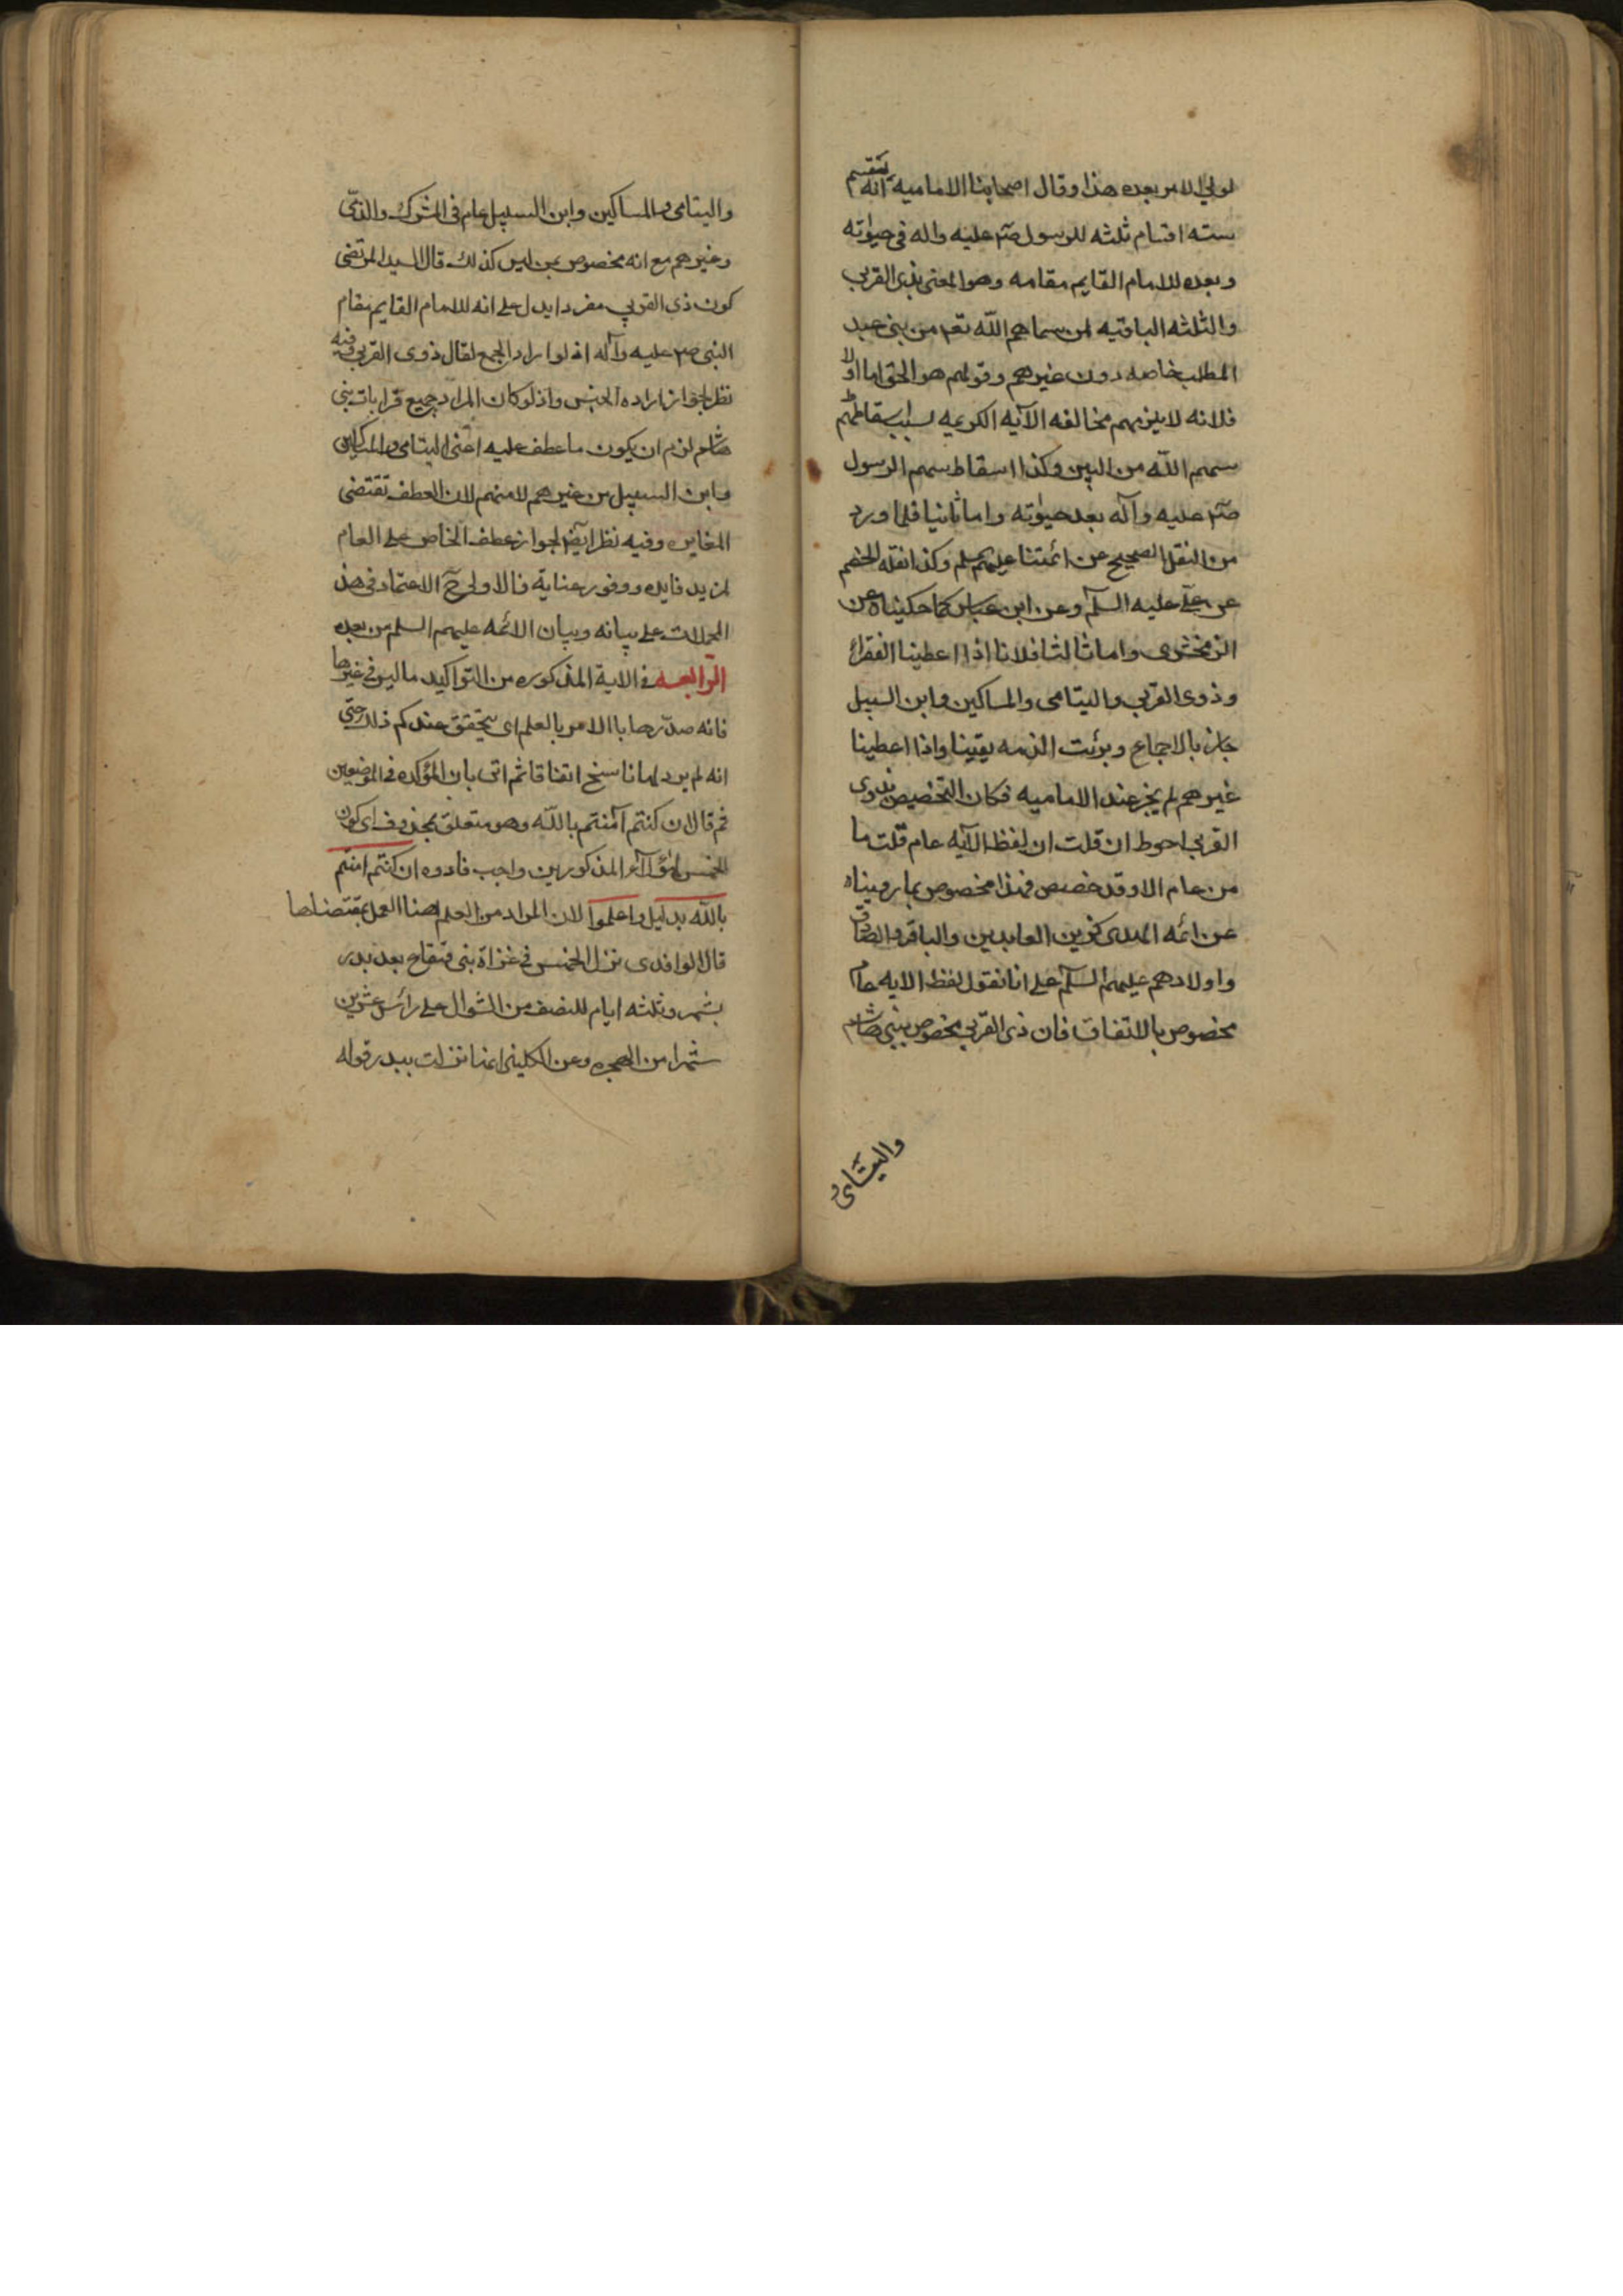 لولي الامر بعده هذا وقال اصحابنا الاماميه انه يقسم
سته اقسام ثلثه للرسول صلم عليه واله في حيوته
وبعده للامام القايم مقامه وهو المعنى بذى القربى
والثلثه الباقيه لمن سماهم الله تعم من بنى عبد
المطلب خاصه دون غيرهم وقولهم هو الحق اما اولا
فلانه لا يلزمهم مخالفه الآيه الكريمه بسبب اسقاطهم
سهم الله من البين وكذا اسقاط سهم الرسول
صلم عليه وآله بعد حيوته واما ثانيا فلما ورد
من النقل الصحيح عن ائمتنا عليهم وكذا نقله الخصم
عن علي عليه السلم وعن ابن عباس كما حكيناه عن
الزمخشرى واما ثالثا فلانا اذا اعطينا الفقراء
وذوى القربى واليتامى والمساكين وابن السبيل
جاز بالاجماع وبرئت الذمه يقينا واذا اعطينا
غيرهم لم يجز عند الاماميه فكان التخصيص بذوى
القربى احوط ان قلت ان لفظ الآيه عام قلت ما
من عام الا وقد خصص فهذا مخصوص بما رويناه
عن ائمه الهدى كزين العابدين والباقر والصادق
واولادهم عليهم السلم على انا نقول لفظ الايه عام
مخصوص بالاتفاق فان ذى القربى مخصوص ببنى هاشم
واليتامى
واليتامى والمساكين وابن السبيل عام فى المشرك والذمّى
وغيرهم مع انه مخصوص بمن ليس كذلك قال السيد المرتضى
كون ذى القربى مفردا يدل على انه للامام القايم مقام
النبى صلم عليه وآله اذ لو اراد الجمع لقال ذوى القربى وفيه
نظر لجواز اراده الجنس واذ لو كان المراد جميع قرابات بنى
هاشم لزم ان يكون ما عطف عليه اعنى اليتامى والمساكين
وابن السبيل من غيرهم لا منهم لان العطف تقتضى
المغايره وفيه نظر ايضا لجواز عطف الخاص على العام
لمزيد فايده ووفور عناية فالاولى ح الاعتماد فى هذه
المجملات على بيانه وبيان الائمه عليهم السلم من بعده
الرابعه فى الاية المذكوره من التواكيد ما ليس فى غيرها
فانه صدّرها بالامر بالعلم اى يتحقق عندكم ذلك حتى
انه لم يرد لها ناسخ اتفاقا ثم اتى بان المؤكده فى الموضعين
ثم قال ان كنتم آمنتم بالله وهو متعلق بمحذوف اى كون
الخمس لهؤلاء المذكورين واجب فادوه ان كنتم امنتم
بالله بدليل واعلموا لان المراد من العلم هنا العمل بمقتضاها
قال الواقدى نزل الخمس فى غزاة بنى قينقاع بعد بدر
بشهر وثلثه ايام للنصف من الشوال على رأس عشرين
شهرا من الهجره وعن الكلينى انها نزلت ببدر قوله